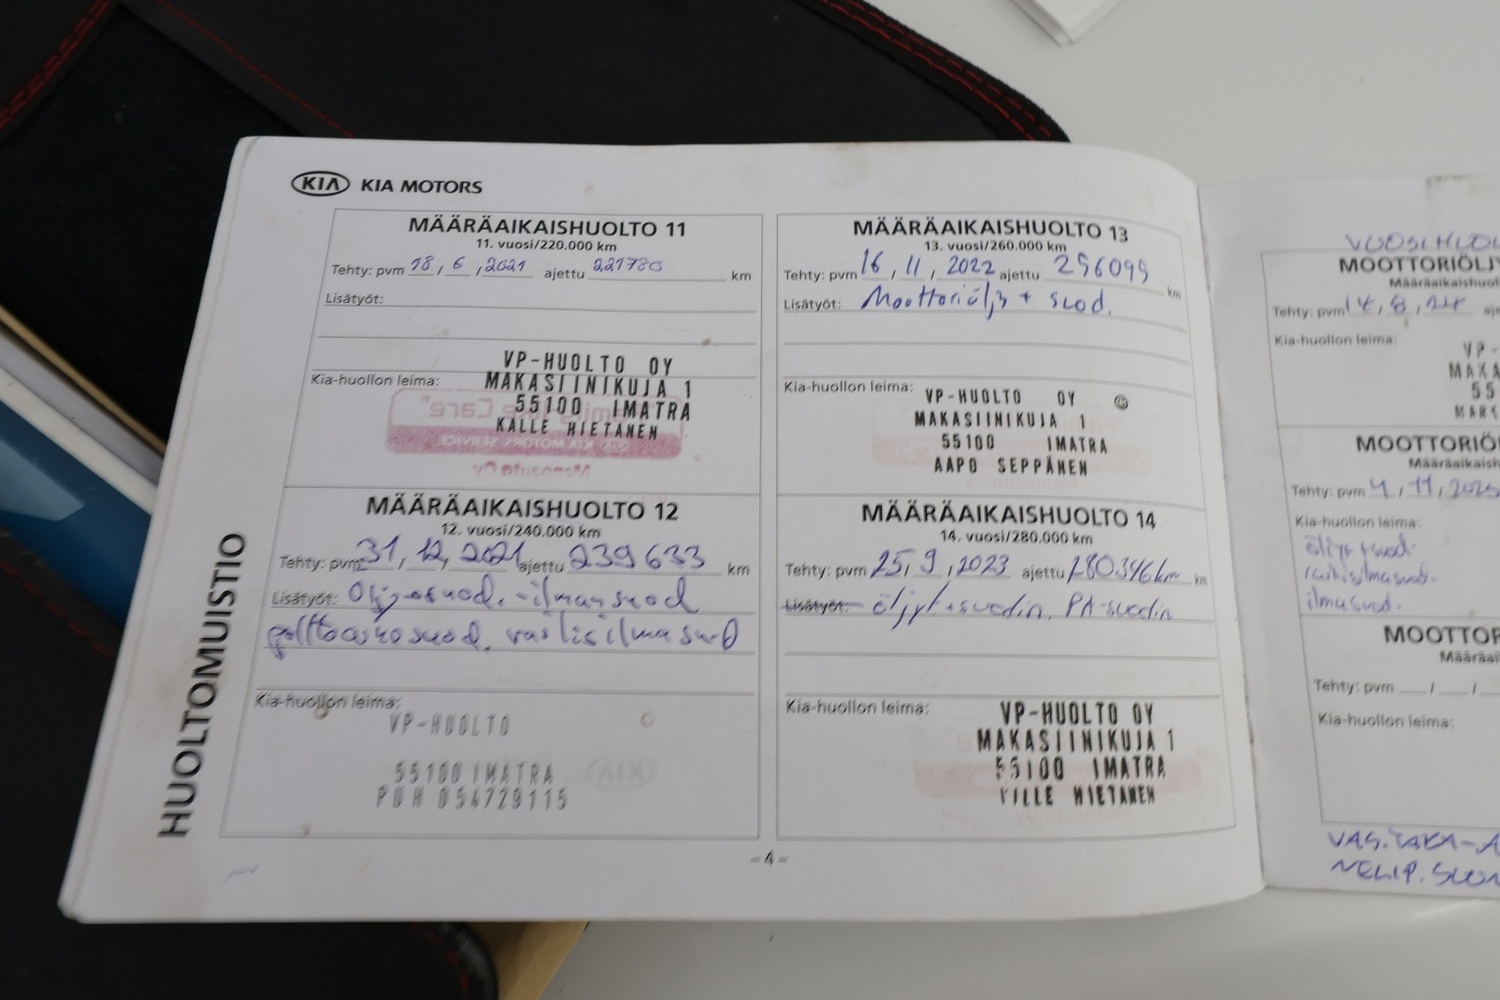 KIA KIA MOTORS
HUOLTOMUISTIO
MÄÄRÄAIKAISHUOLTO 11
11. vuosi/220.000 km
Tehty: pvm 18 / 6 / 2021 ajettu 221780 km
Lisätyöt:
Kia-huollon leima:
VP-HUOLTO OY
MAKASIINIKUJA 1
55100 IMATRA
KALLE HIETANEN
MÄÄRÄAIKAISHUOLTO 12
12. vuosi/240.000 km
Tehty: pvm 31 / 12 / 2021 ajettu 239633 km
Lisätyöt: öljy+suod. -ilmansuod
polttoainesuod. raitisilmasuod
Kia-huollon leima:
VP-HUOLTO
55100 IMATRA
PUH 054729115
MÄÄRÄAIKAISHUOLTO 13
13. vuosi/260.000 km
Tehty: pvm 16 / 11 / 2022 ajettu 256099 km
Lisätyöt: Moottoriöljy + suod.
Kia-huollon leima:
VP-HUOLTO OY
MAKASIINIKUJA 1
55100 IMATRA
AAPO SEPPÄNEN
MÄÄRÄAIKAISHUOLTO 14
14. vuosi/280.000 km
Tehty: pvm 25 / 9 / 2023 ajettu 280346km km
Lisätyöt: öljyt+suodin. PA-suodin
Kia-huollon leima:
VP-HUOLTO OY
MAKASIINIKUJA 1
55100 IMATRA
VILLE HIETANEN
-4-
VUOSIHUOL
MOOTTORIÖLJY
Määräaikaishuol
Tehty: pvm 14 / 8 / 24 aje
Kia-huollon leima:
VP-
MAKA
55
MARK
MOOTTORIÖ
Määräaikaish
Tehty: pvm 4 / 11 / 2025
Kia-huollon leima:
öljyt+suod.
raitisilmasuod.
ilmasuod.
MOOTTOR
Määräai
Tehty: pvm / /
Kia-huollon leima:
VAS.TAKA-A
NELIP.SUOD